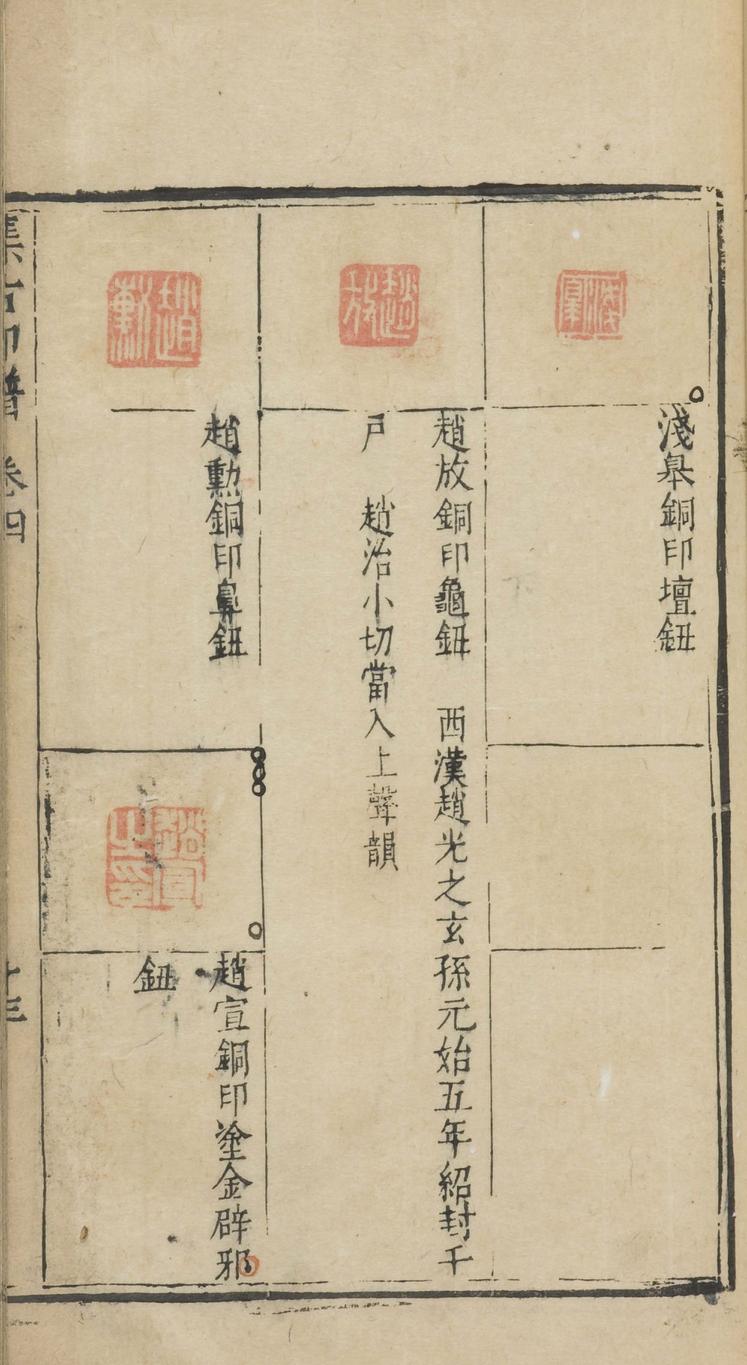 淺皋
淺皋銅印壇鈕
趙放
趙放銅印龜鈕 西漢趙光之玄孫元始五年紹封千
戶 趙治小切當入上聲韻
趙勳
趙勳銅印鼻鈕
趙宣之印
趙宣銅印塗金辟邪
鈕
集古印譜 卷四
十三